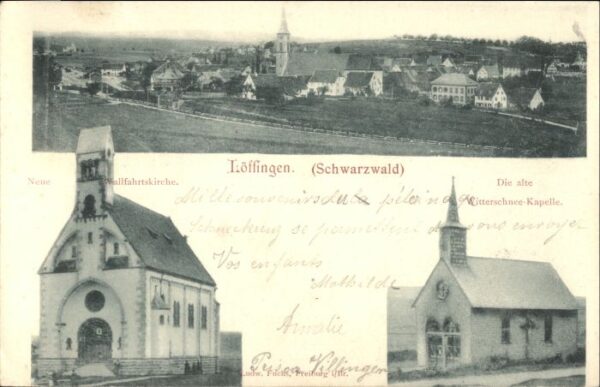 Löffingen. (Schwarzwald)
Neue Wallfahrtskirche.
Die alte
Witterschnee-Kapelle.
Mille souvenirs de la
Schneekreuz se permettent de vous envoyer
Vos enfants
Mathilde
Amalie
Villingen
Ludw. Fuchs, Freiburg i/Br.